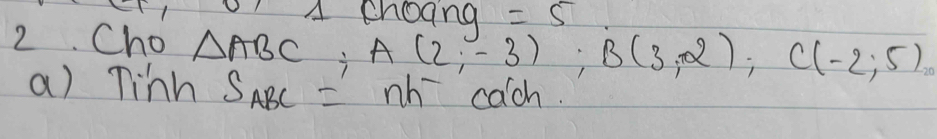 1 khoảng = 5
2. Cho ΔABC ; A (2;-3) ; B(3;-2) ; C(-2;5)
a) Tính S_ABC = nh cách.